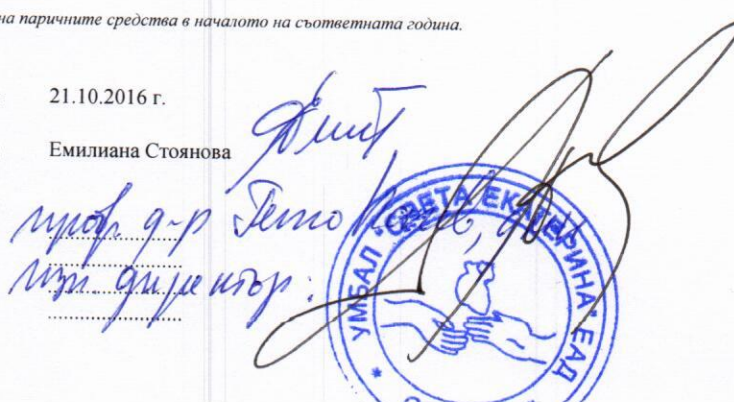 на паричните средства в началото на съответната година.
21.10.2016 г.
Емилиана Стоянова
проф. д-р Генчо
изп. директор:
УМБАЛ "СВЕТА ЕКАТЕРИНА" ЕАД